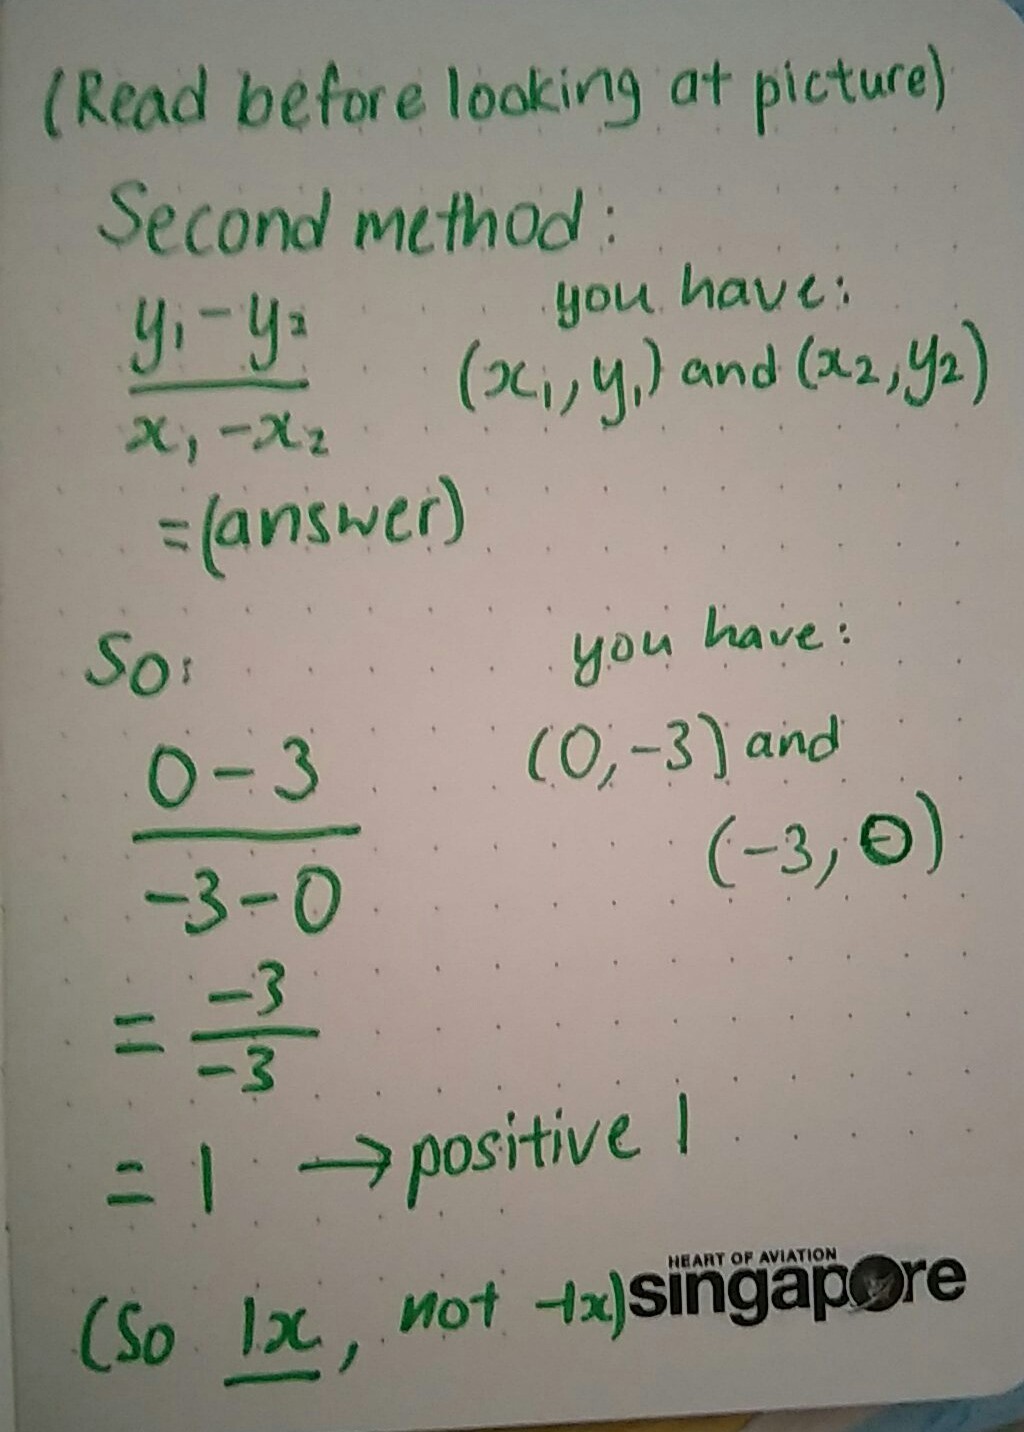 (Read before looking at picture)
Second method:
y₁-y₂
x₁-x₂
=(answer)
you have:
(x₁,y₁) and (x₂,y₂)
So:
0-3
-3-0
= -3
-3
= 1 → positive 1
you have:
(0,-3) and
(-3,0)
(So 1x, not -1x)
HEART OF AVIATION
singapore